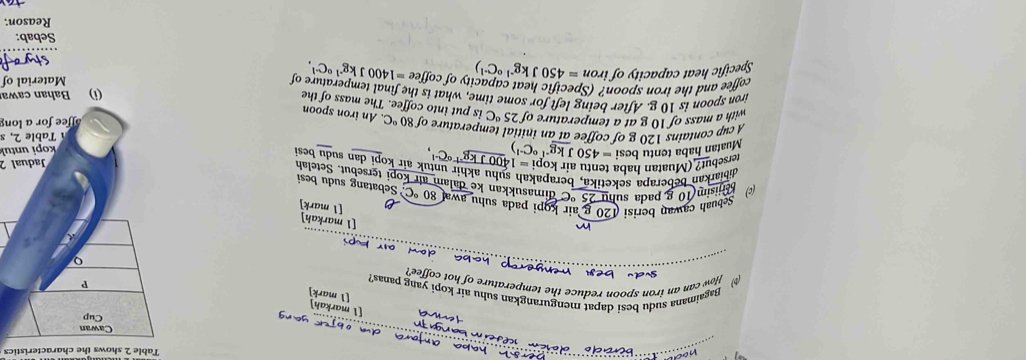 haba antara dua objek yang
berada dalam keseimbangan
terma
[1 markah]
[1 mark]
(b) Bagaimana sudu besi dapat mengurangkan suhu air kopi yang panas?
How can an iron spoon reduce the temperature of hot coffee?
sudu besi menyerap haba dari air kopi
[1 markah]
[1 mark]
m
θ
(c) Sebuah cawan berisi 120 g air kopi pada suhu awal 80 °C. Sebatang sudu besi
berjisim 10 g pada suhu 25 °C dimasukkan ke dalam air kopi tersebut. Setelah
dibiarkan beberapa seketika, berapakah suhu akhir untuk air kopi dan sudu besi
tersebut? (Muatan haba tentu air kopi = 1400 J kg⁻¹ °C⁻¹,
Muatan haba tentu besi = 450 J kg⁻¹ °C⁻¹)
A cup contains 120 g of coffee at an initial temperature of 80 °C. An iron spoon
with a mass of 10 g at a temperature of 25 °C is put into coffee. The mass of the
iron spoon is 10 g. After being left for some time, what is the final temperature of
coffee and the iron spoon? (Specific heat capacity of coffee = 1400 J kg⁻¹ °C⁻¹,
Specific heat capacity of iron = 450 J kg⁻¹ °C⁻¹)
Table 2 shows the characteristics
Cawan
Cup
P
Q
Jadual 2
kopi untuk
Table 2, s
coffee for a long
(i) Bahan cawan
Material of
Sebab:
Reason: